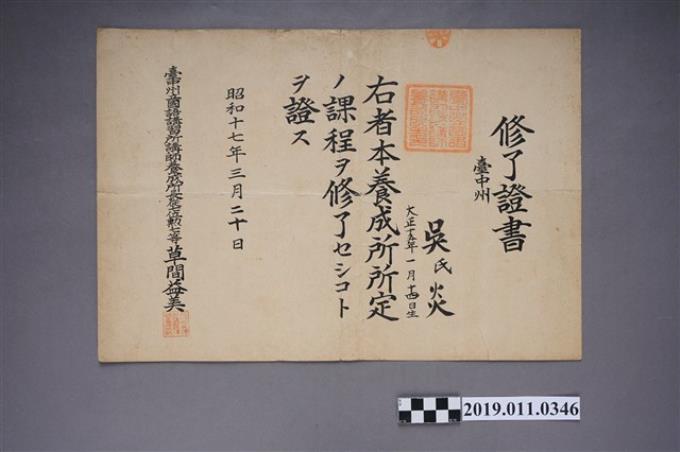 修了證書
臺中州
吳氏炎
大正十五年一月十四日生
右者本養成所所定
ノ課程ヲ修了セシコト
ヲ證ス
昭和十七年三月二十日
臺中州立國語講習所講師養成所長從七位勲七等草間益美
2019.011.0346